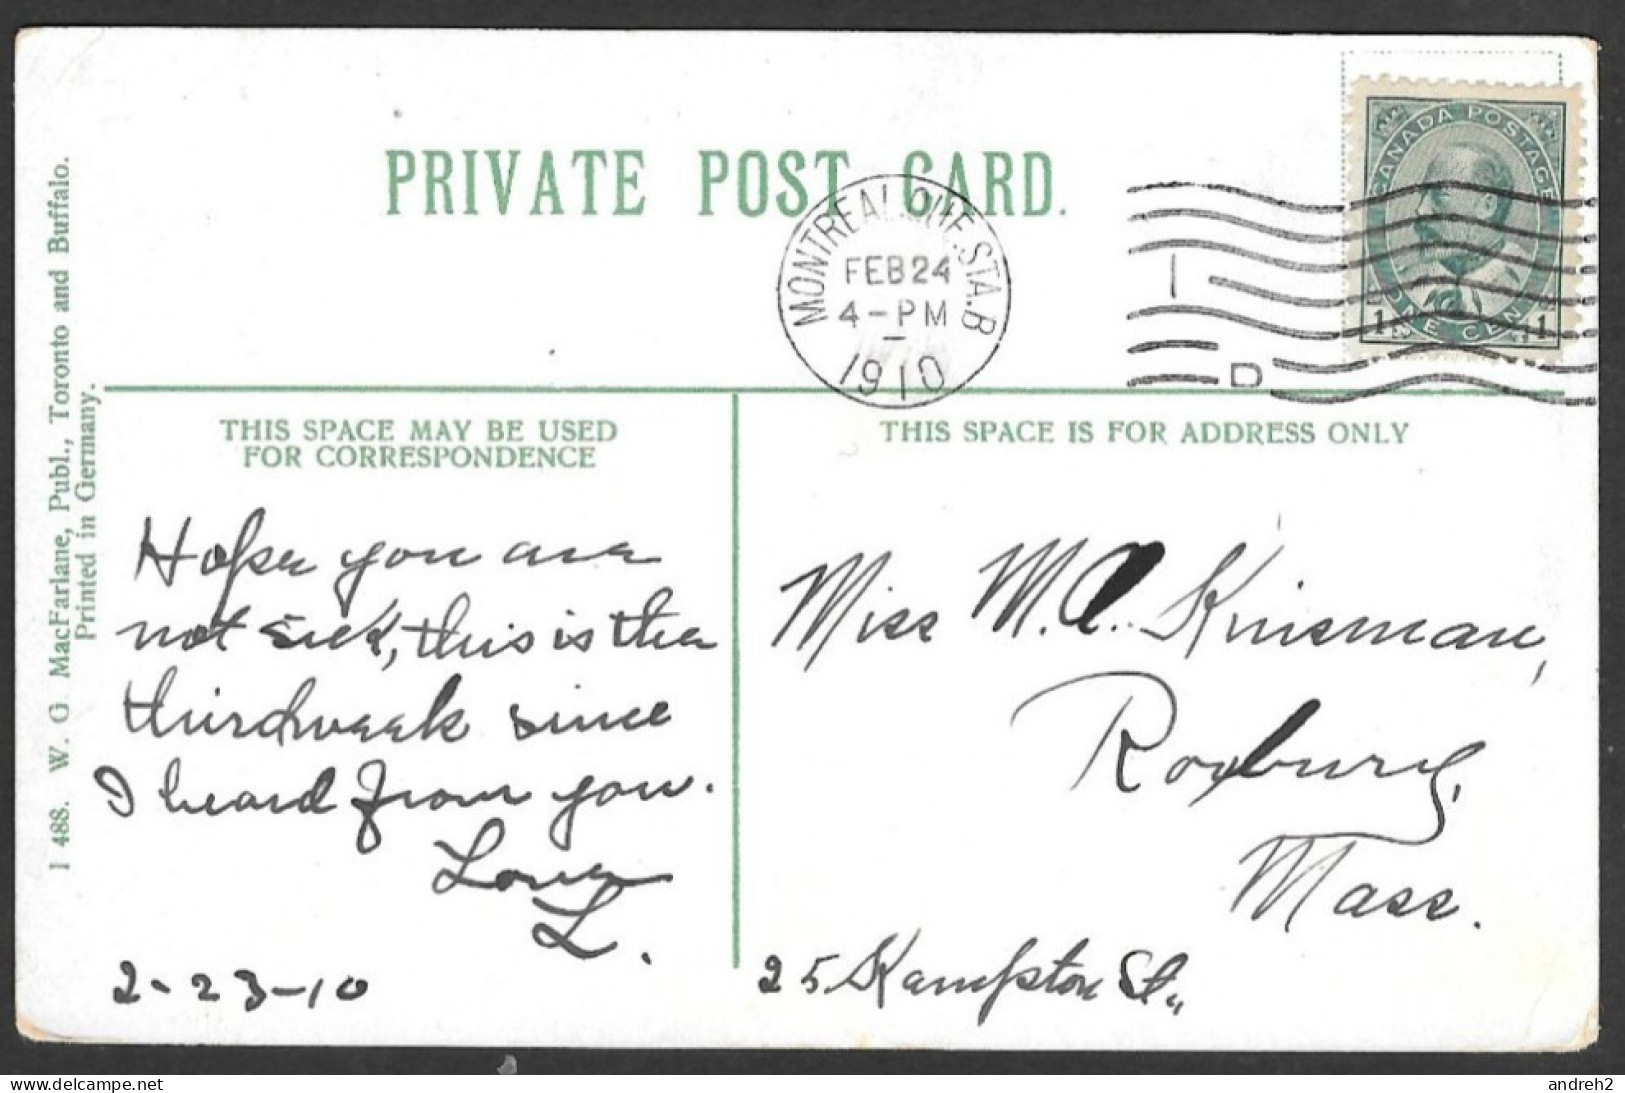 PRIVATE POST CARD.
MONTREAL, QUE. STA. B
FEB 24
4-PM
1910
I
D
CANADA POSTAGE
1 ONE CENT 1
THIS SPACE MAY BE USED
FOR CORRESPONDENCE
THIS SPACE IS FOR ADDRESS ONLY
1 488. W. G. MacFarlane, Publ., Toronto and Buffalo.
Printed in Germany.
Hope you are
not sick, this is the
third week since
I heard from you.
Love
L.
2-23-10
Miss M. Kinsman,
Roxbury,
Mass.
25 Kempton St.,
www.delcampe.net
andreh2